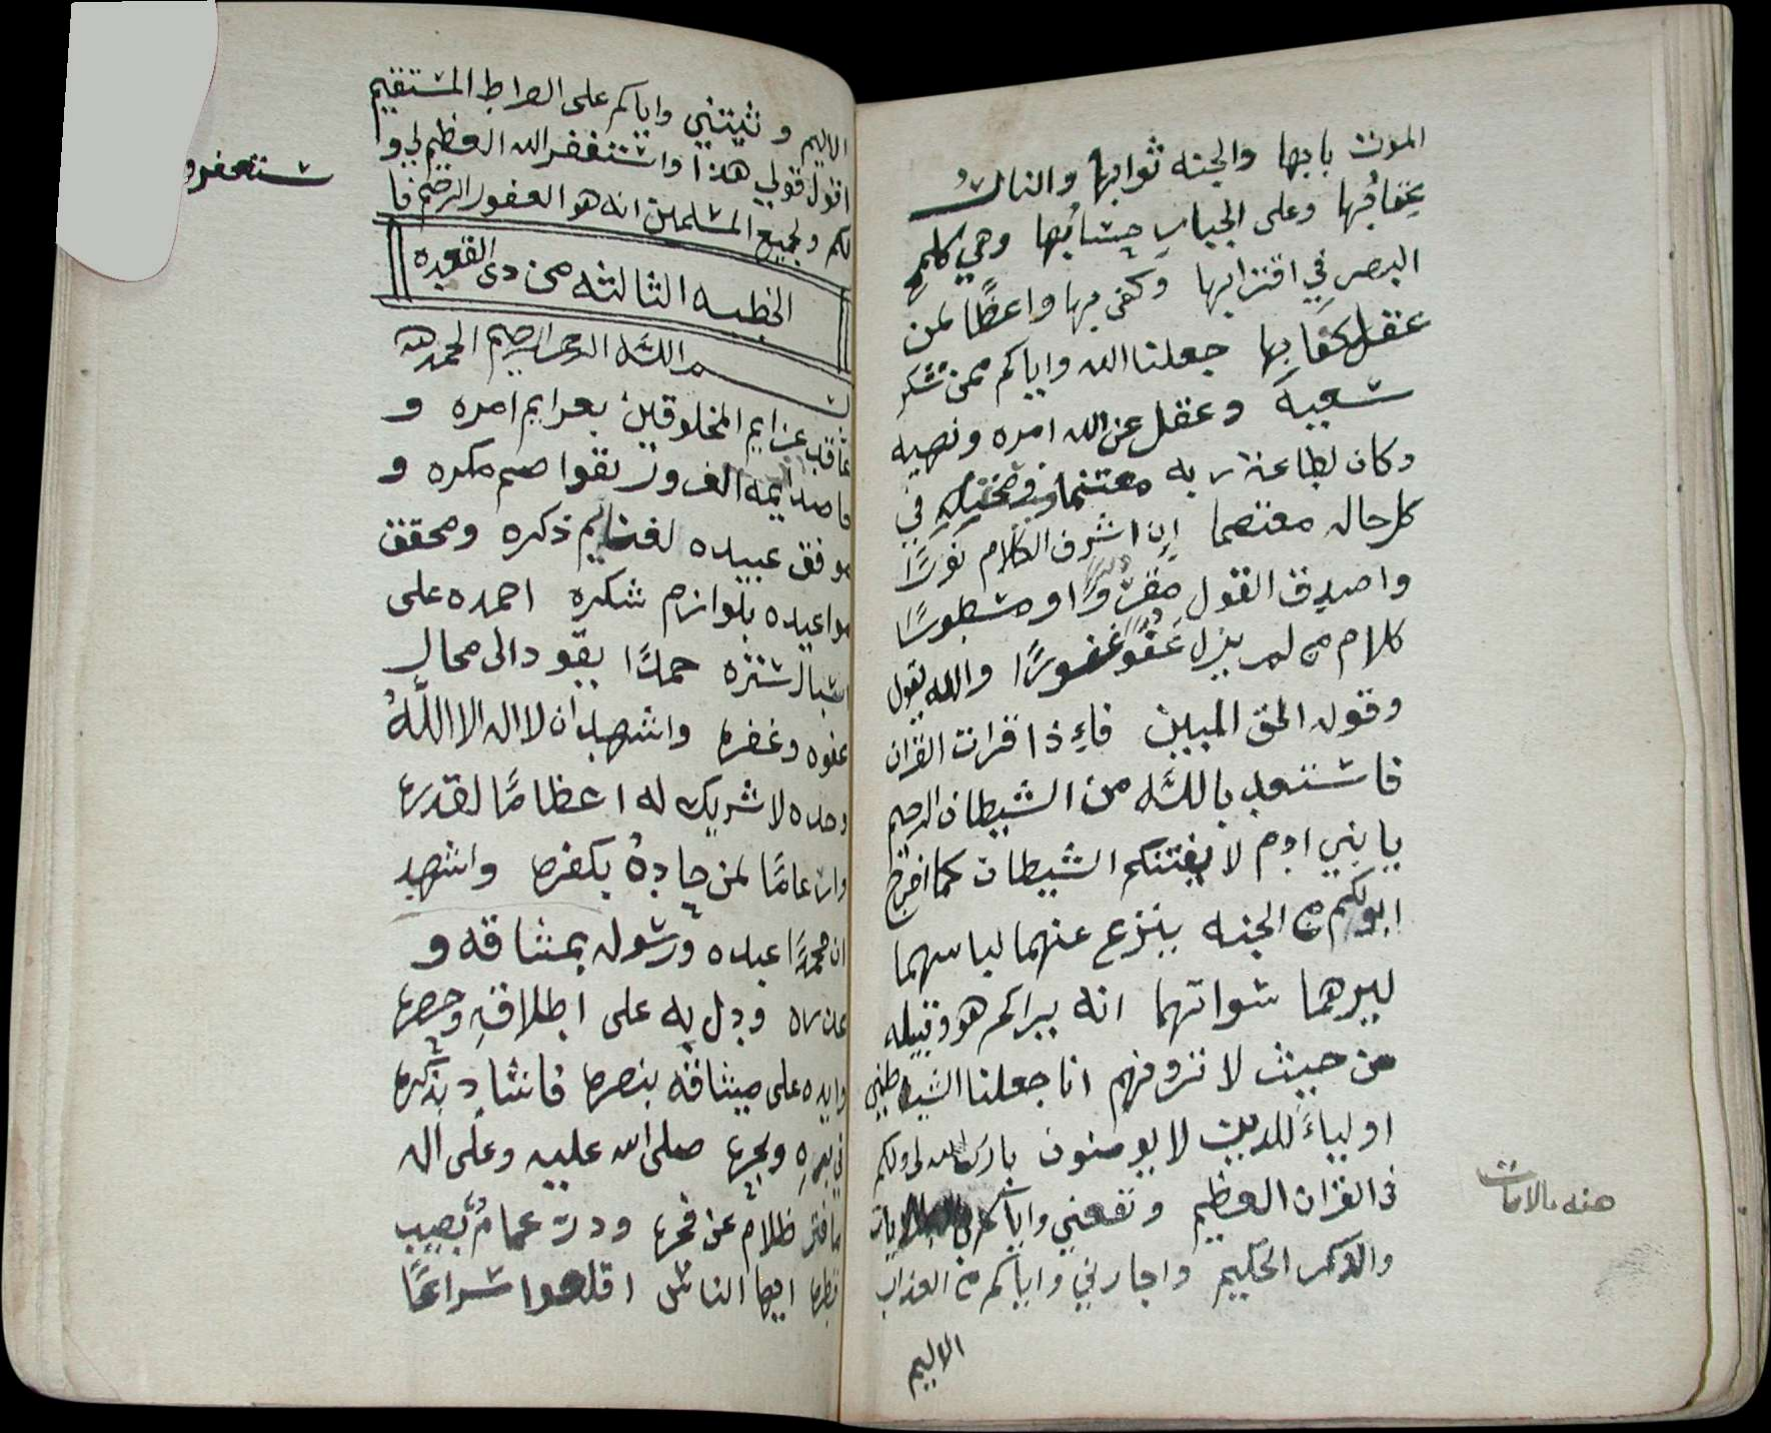 الموت بابها والجنه ثوابها والنار
عقابها وعلى الجبار حسابها وهي كلمح
البصر في اقترابها وكفى بها واعظًا لمن
عقل كفا بها جعلنا الله واياكم ممن شكر
سعيه وعقل عن الله امره ونهيه
وكان لطاعة ربه مغتنما في
كل حاله معتصما إن اشرف الكلام نورًا
واصدق القول او مسطورًا
كلام من لم يزل عفوًّا غفورًا والله يقول
وقوله الحق المبين فاءذا قرات القران
فاستعد بالله من الشيطان الرجيم
يا بني ادم لا يفتنكم الشيطان كما اخرج
ابويكم من الجنه ينزع عنهما لباسهما
ليرهما سواتهما انه يراكم هو وقبيله
من حيث لا ترونهم انا جعلنا الشيطين
اولياءً للدين لا يومنون بارك الله لي ولكم
في القران العظيم ونفعني واياكم الايات
والذكر الحكيم واجارني واياكم من العذاب
الاليم
هنه بالايات
الاليم وثبتني واياكم على الصراط المستقيم
اقول قولي هذا واستغفر الله العظيم لي و
لكم ولجميع المسلمين انه هو الغفور الرحيم فا
ستغفرو
الخطبه الثالثه من دى القعده
بسم الله الرحمن الرحيم الحمد لله
عزايم المخلوقين بعزايم امره و
مكره و
موفق عبيده لغنايم ذكره ومحقق
مواعيده بلوازم شكره احمده على
اسبال ستره حمدًا يقود الى محال
عفوه وغفره واشهد ان لا اله الا اللهُ
وحده لا شريك له اعظامًا لقدره
وارغامًا لمن جاده بكفره واشهد
ان محمدًا عبده ورسوله و
ودل به على اطلاقه وحصره
وايده على ميثاقه بنصره فاشاد بذكره
في بره وبحره صلى الله عليه وعلى اله
ما فتر ظلام عن فجره ودر غمامٌ بصيب
قطره ايها الناس اقلعوا سراعًا